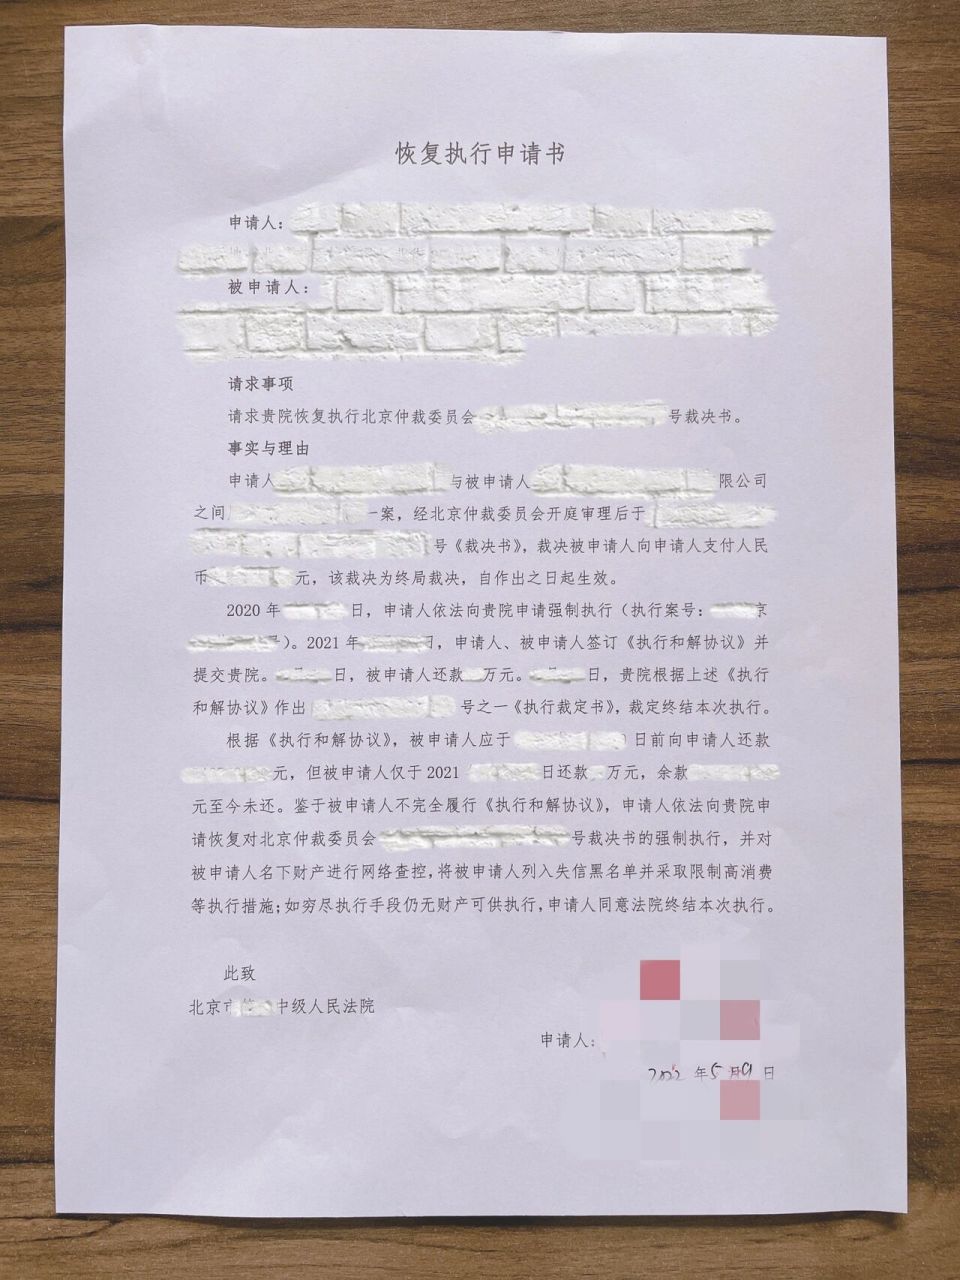 恢复执行申请书
申请人：
被申请人：
请求事项
请求贵院恢复执行北京仲裁委员会 号裁决书。
事实与理由
申请人 与被申请人 限公司
之间 一案，经北京仲裁委员会开庭审理后于
号《裁决书》，裁决被申请人向申请人支付人民
币 元，该裁决为终局裁决，自作出之日起生效。
2020 年 日，申请人依法向贵院申请强制执行（执行案号： 京
号）。2021 年 日，申请人、被申请人签订《执行和解协议》并
提交贵院。 日，被申请人还款 万元。 日，贵院根据上述《执行
和解协议》作出 号之一《执行裁定书》，裁定终结本次执行。
根据《执行和解协议》，被申请人应于 日前向申请人还款
元，但被申请人仅于 2021 日还款 万元，余款
元至今未还。鉴于被申请人不完全履行《执行和解协议》，申请人依法向贵院申
请恢复对北京仲裁委员会 号裁决书的强制执行，并对
被申请人名下财产进行网络查控，将被申请人列入失信黑名单并采取限制高消费
等执行措施；如穷尽执行手段仍无财产可供执行，申请人同意法院终结本次执行。
此致
北京市 中级人民法院
申请人：
2022 年 5 月 9 日